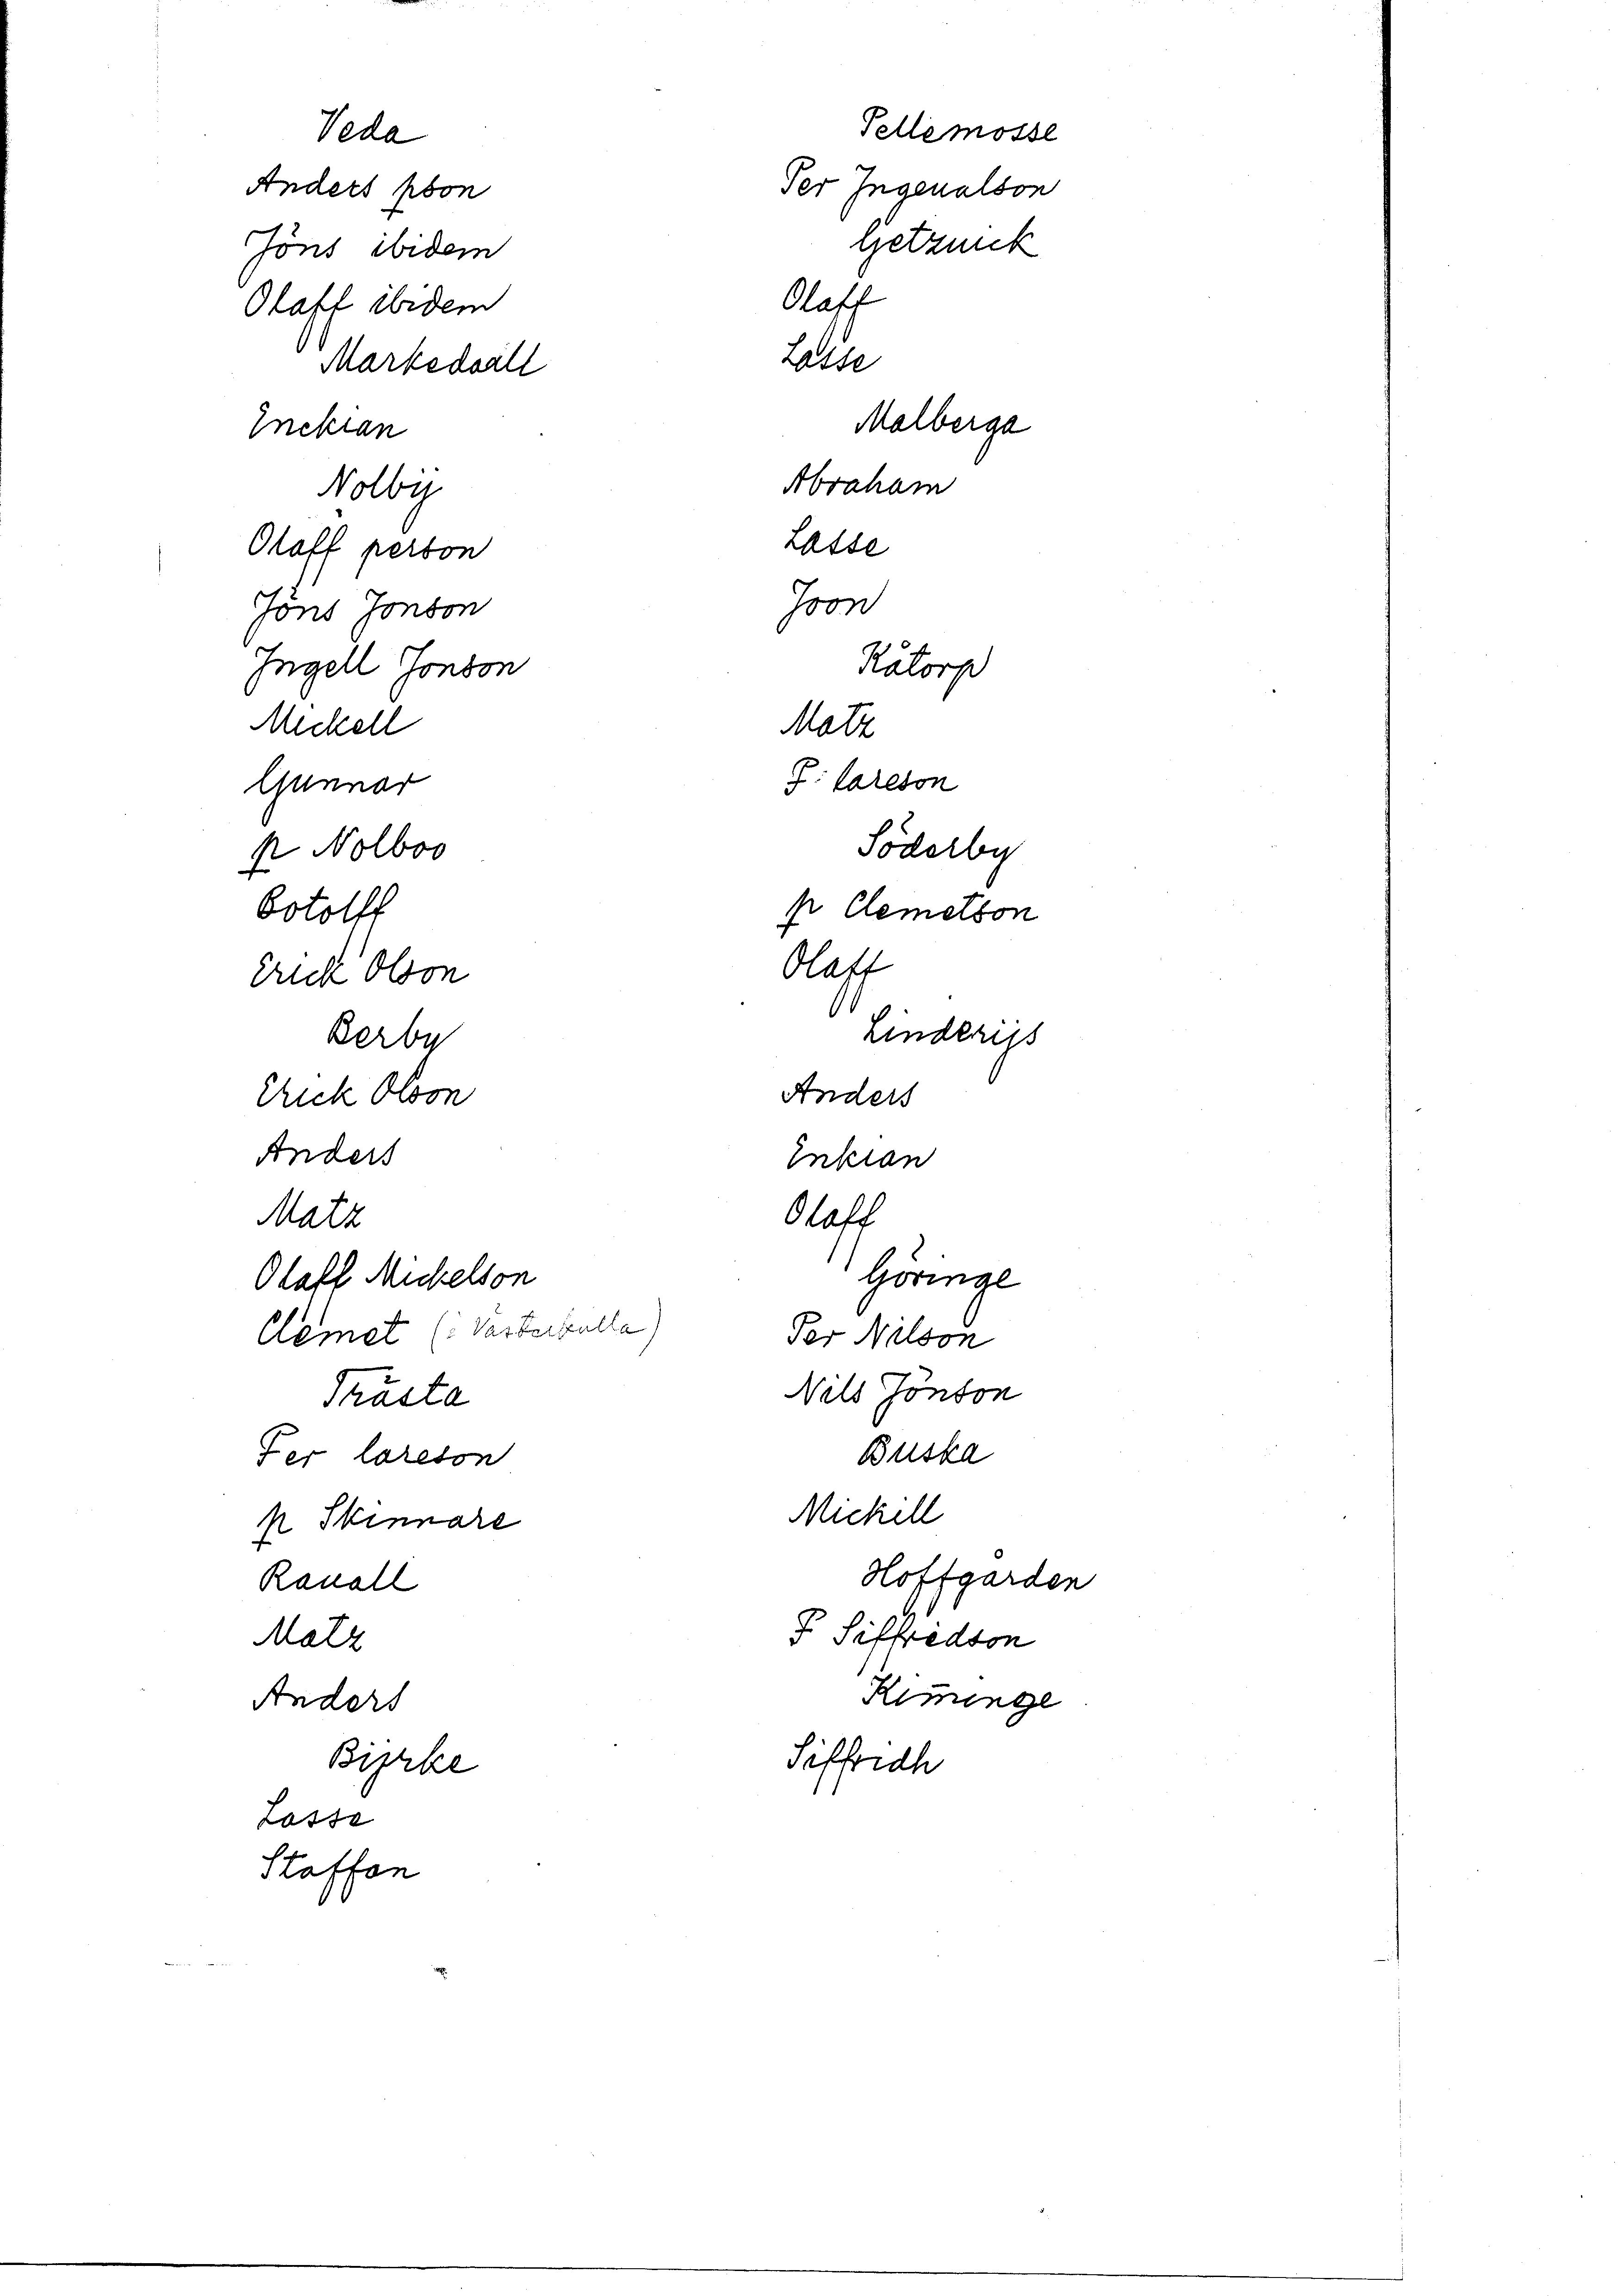 Veda
Anders pson
Jöns ibidem
Olaff ibidem
Markedaall
Enckian
Nolbij
Olaff person
Jöns Jonson
Ingell Jonson
Mickell
Gunnar
pr Nolboo
Botolff
Erick Olson
Berby
Erick Olson
Anders
Matz
Olaff Mickelson
Clemet (i Västerbulla)
Trästa
Per lareson
pr Skinnare
Rauall
Matz
Anders
Bijrke
Lasse
Staffan
Pellemosse
Per Ingeualson
Getzuick
Olaff
Lasse
Malberga
Abraham
Lasse
Joon
Råtorp
Matz
P: lareson
Söderby
pr Clemetson
Olaff
Linderijs
Anders
Enkian
Olaff
Göringe
Per Nilson
Nils Jönson
Buska
Mickill
Hoffgården
P Siffredson
Kiminge
Siffridh